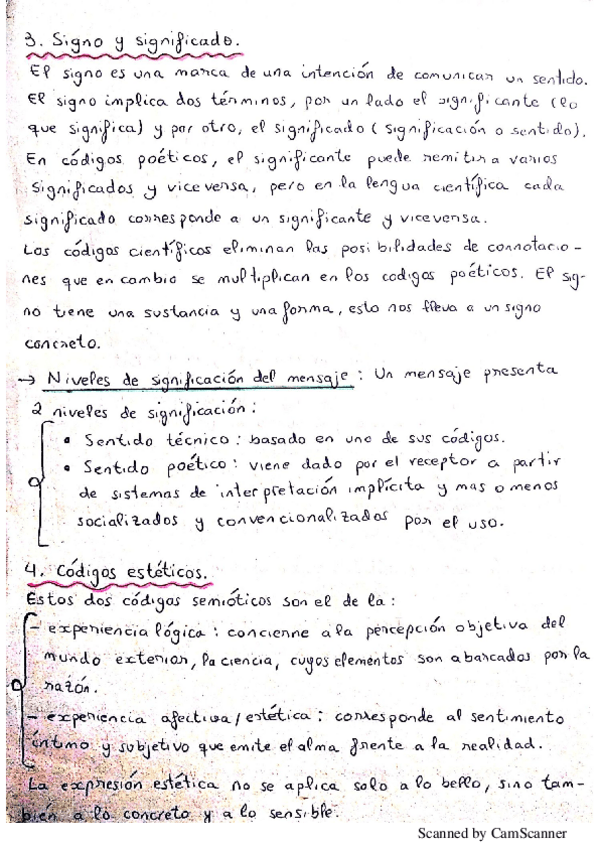 3. Signo y significado.
El signo es una marca de una intención de comunicar un sentido.
El signo implica dos términos, por un lado el significante (lo
que significa) y por otro, el significado (significación o sentido).
En códigos poéticos, el significante puede remitir a varios
significados y viceversa, pero en la lengua científica cada
significado corresponde a un significante y viceversa.
Los códigos científicos eliminan las posibilidades de connotacio-
nes que en cambio se multiplican en los codigos poéticos. El sig-
no tiene una sustancia y una forma, esto nos lleva a un signo
concreto.
→ Niveles de significación del mensaje: Un mensaje presenta
2 niveles de significación:
• Sentido técnico: basado en uno de sus códigos.
• Sentido poético: viene dado por el receptor a partir
de sistemas de interpretación implícita y mas o menos
socializados y convencionalizados por el uso.
4. Códigos estéticos.
Estos dos códigos semióticos son el de la:
- experiencia lógica: concierne a la percepción objetiva del
mundo exterior, la ciencia, cuyos elementos son abarcados por la
razón.
- experiencia afectiva/estética: corresponde al sentimiento
íntimo y subjetivo que emite el alma frente a la realidad.
La expresión estética no se aplica solo a lo bello, sino tam-
bién a lo concreto y a lo sensible.
Scanned by CamScanner